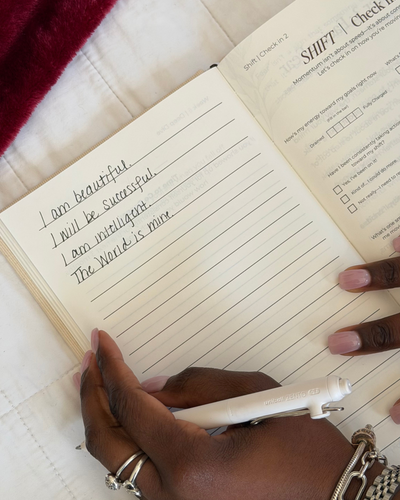 I am beautiful.
I will be successful.
I am intilligent.
The World is mine
Shift | Check in 2
SHIFT | Check in
Momentum isn't about speed—it's about
Let's check in on how you're moving
How's my energy toward my goals right now
Drained
Fully Charged
Have I been consistently taking
toward my shift?
Yes, I've been on it!
Kind of, I
Not really—I need to
What's one